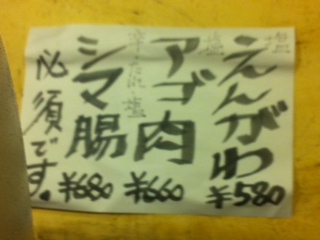 塩
えんがわ
¥580
塩
アゴ肉
¥660
辛だれ 塩
シマ腸
¥680
必須です。